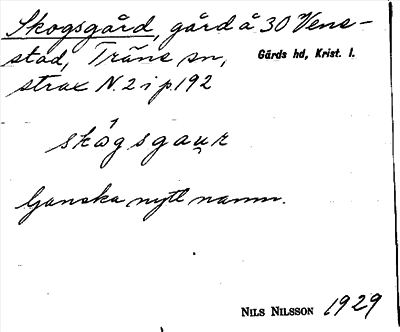 Skogsgård, gård å 30 Vens-
stad, Träne sn, Gärds hd, Krist. l.
strax N. 2 i p. 192
skógsgaụr
Ganska nytt namn.
NILS NILSSON 1929